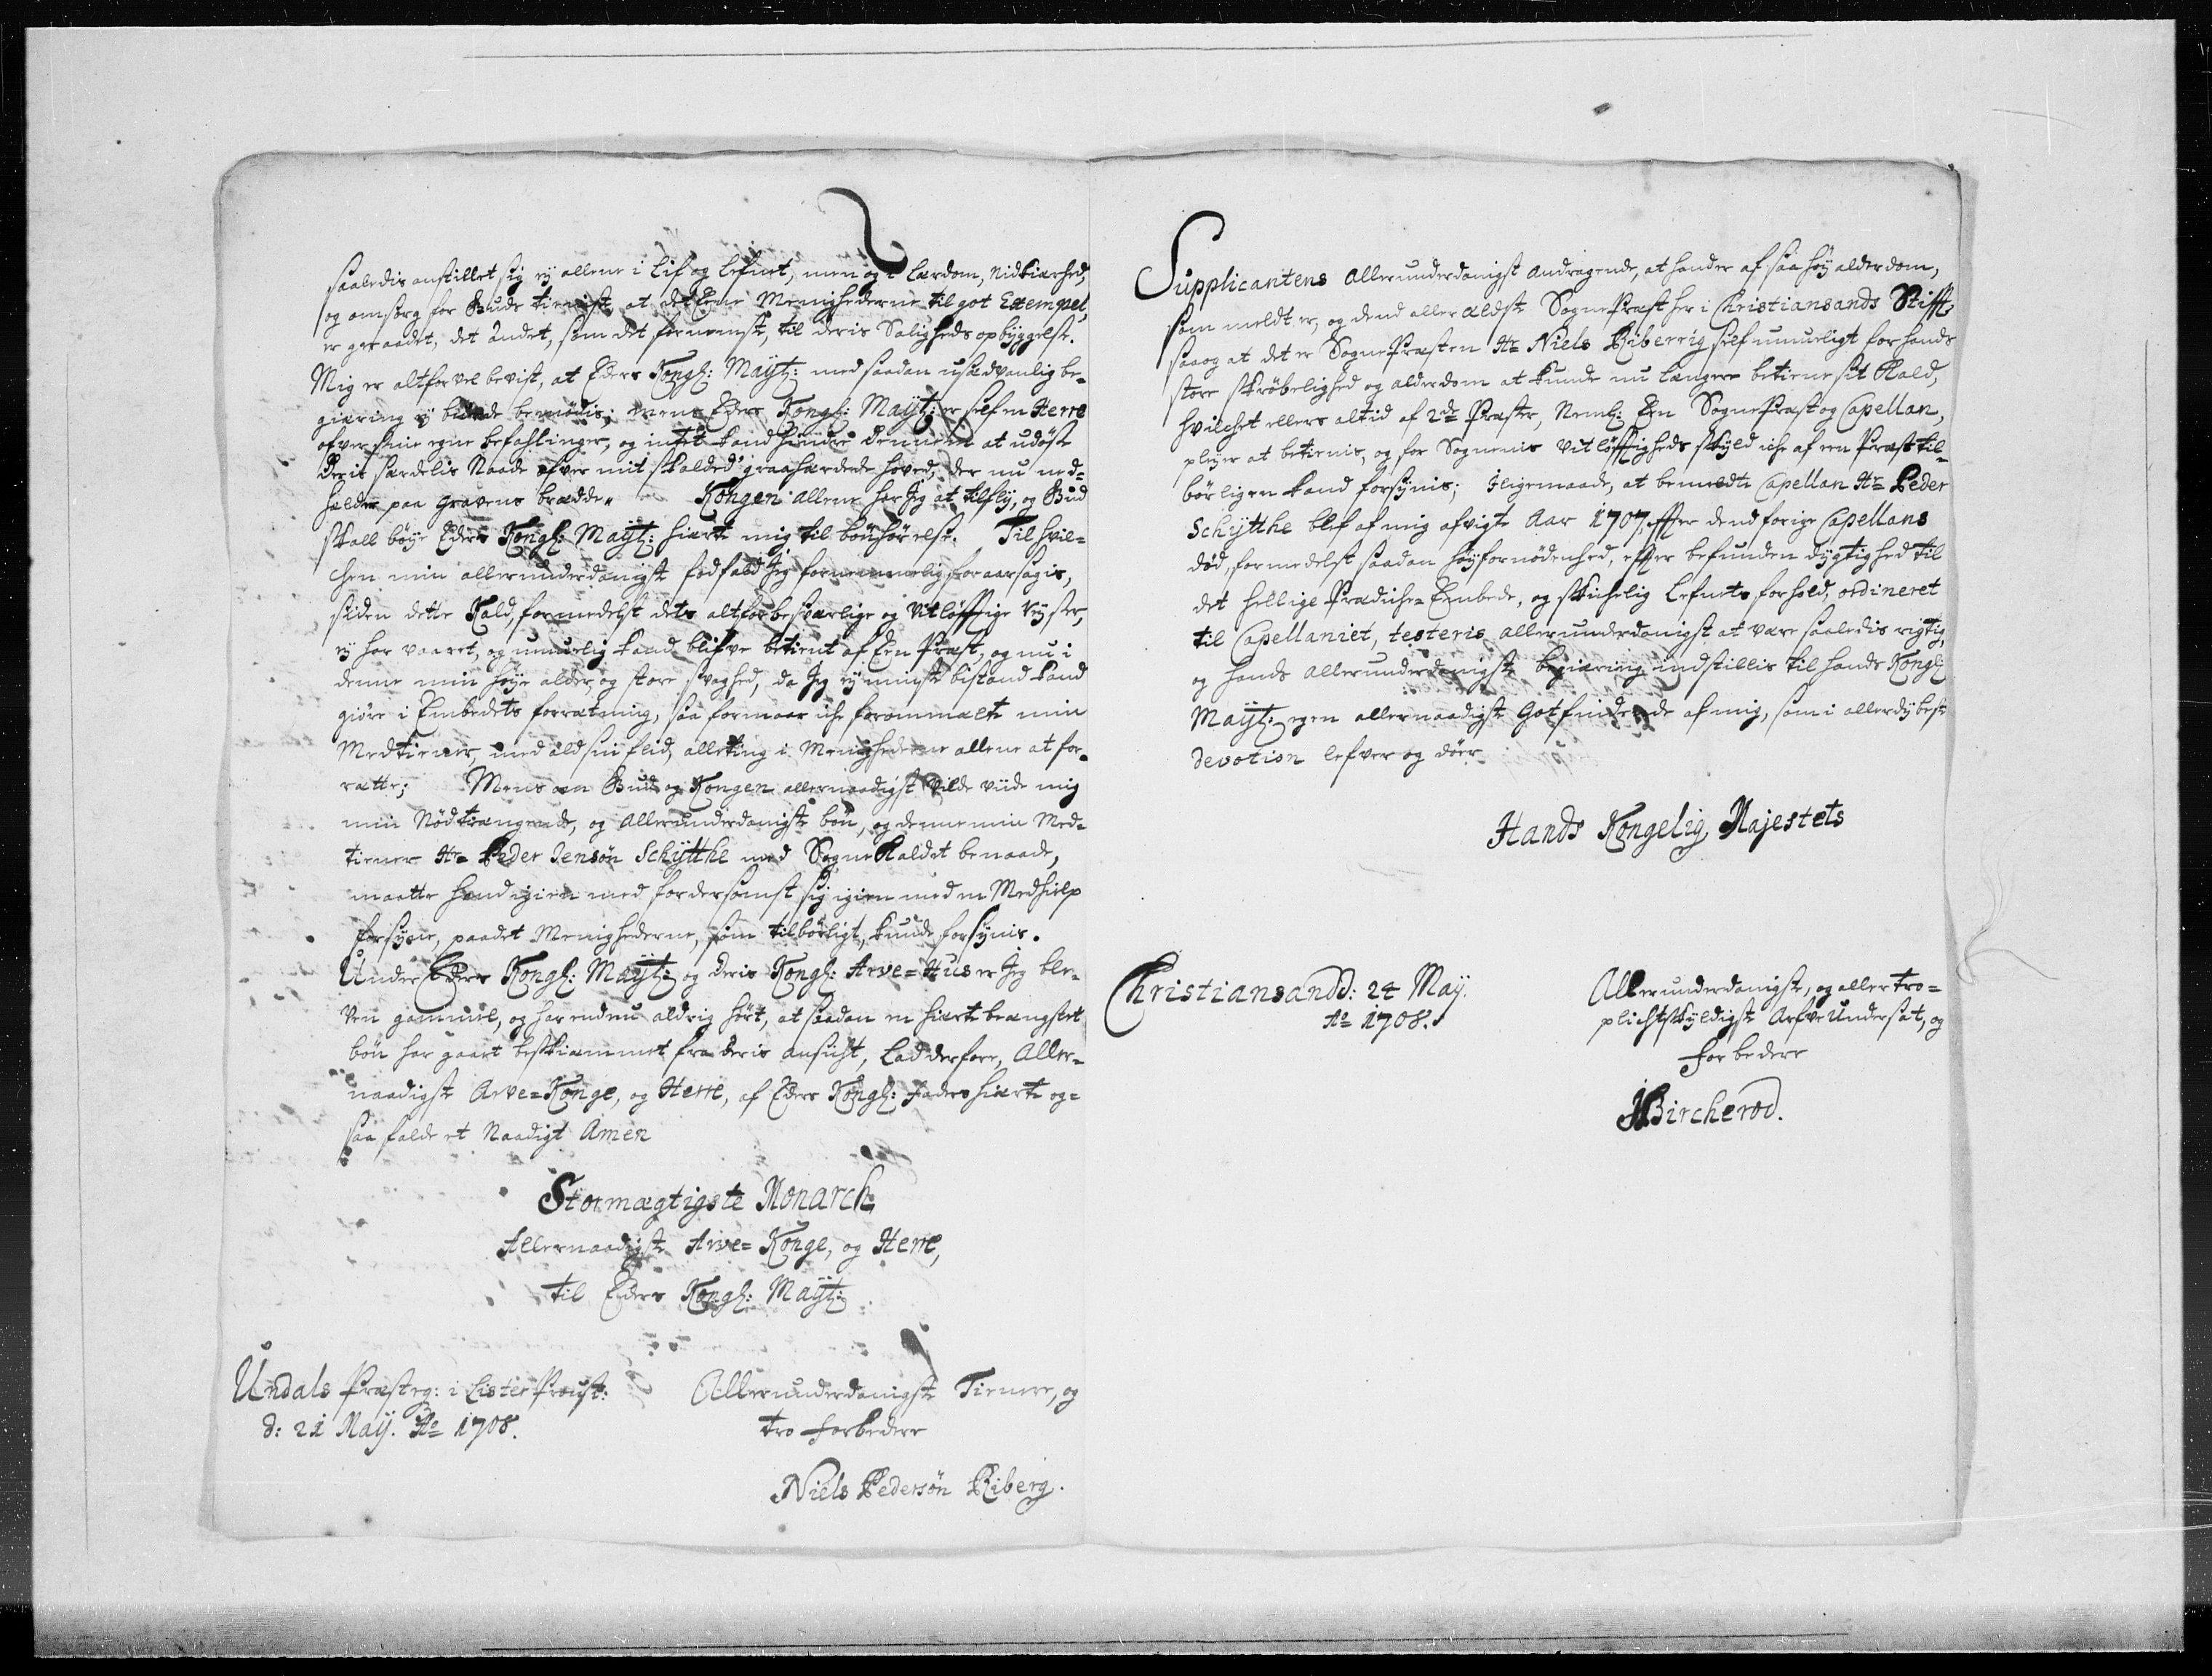 saaledis anstillet sig ej allene i Lif og Lefnet, men og i Lærdom, Nidkiærhed,
og omsorg for Guds tieniste, at det Eene Menighederne til got Exempel,
er geraadet, det Andet, som det fornemste, til deris Saligheds opbyggelse.
Mig er altforvel bevist, at Eders Kongl: Maÿt: med saadan usædvanlig be-
giæring ej burde bemødis; mens Eders Kongl: Maÿt: er self en Herre
ofver sine egne befahlinger, og intet kand hindre Dennem at udøse
Deris særdelis Naade ofver mit skalded graahærdede hoved, der nu ned-
helder paa Gravens brædde„ Kongen allene har Jeg at tilflÿ, og Gud
skall bøÿe Eders Kongl: Maÿt: hierte mig til bønhørelse. Til hvil-
chen min allerunderdanigst fodfald Jeg fornemmelig foraarsagis,
siden dette Kald, formedelst dets altforbesværlige og Vitløfftige reÿser,
ej har vaaret, og umuelig kand blifve betient af Een Præst, og nu i
denne min høÿe alder, og store svaghed, da Jeg ej minste bistand kand
giøre i Embedets forrætning, saa formaar iche forommælte min
Medtienner, med ald sin flid, alleting i Menighederne allene at for-
rætte; Mens om Gud og Kongen allernaadigst vilde viide mig
min Nødtrængende, og Allerunderdanigste bøn, og denne min Med-
tienner Hr= Peder Jensøn Schÿtthe med Sogne Kaldet benaade,
maatte hand igien med fordersomst sig igien med en Medhielp
forsÿne, paadet Menighederne, som tilbørligt, kunde forsÿnis.
Under Eders Kongl: Maÿt: og Deris Kongl: Arve=Hus er Jeg ble-
ven gammel, og har endnu aldrig hørt, at saadan en hierte beængstet
bøn har gaaet beskiæmmet fra deris ansicht, Lad derfore, Aller-
naadigste Arve=Konge, og Herre, af Eders Kongl: Faders hierte og-
saa falde et Naadigt Amen
Stormægtigste Monarch
Allernaadigste Arve=Konge, og Herre,
til Eders Kongl: Maÿt:
Undals Præsteg: i Lister Proust:
d: 21 Maÿ. Ao 1708.
Allerunderdanigste Tienner, og
tro forbedere
Niels Pedersøn Riberg.
Supplicantens Allerunderdanigst Andragende, at hand er af saa høÿ alderdom,
som meldt er, og dend aller ældste Sogne Præst her i Christiansands Stifft,
saa og at det er Sogne Præsten Hr= Niels Riberrig self umueligt for hands
store skrøbelighed og alderdom at kunde nu længere betiene sit Kald,
hvilchet ellers altid af 2de Præster, Neml: Een Sogne Præst og Capellan,
pleÿer at betienis, og for Sognenis vitløfftigheds skÿld iche af een Præst til-
børligen kand forsÿnis; Iligemaade, at bemeldte Capellan Hr= Peder
Schÿtthe blef af mig afvigte Aar 1707, effter dend forige Capellans
død, formedelst saadan høÿfornødenhed, effter befunden dygtighed til
det hellige Prædiche=Embede, og skichelig Lefnets forhold, ordineret
til Capellaniet, testeris allerunderdanigst at være saaledis rigtig,
og hands allerunderdanigste begiæring indstillis til hands Kongl:
Maÿt: egen allernaadigste Gotfindende af mig, som i allerdÿbeste
devotion lefver og døer
Hands Kongelig Majestets
Christiansand d: 24 Maÿ.
Ao 1708.
Allerunderdanigste, og aller tro=
plichtskÿldigste Arfve Undersat, og
forbedere
JBircherod.